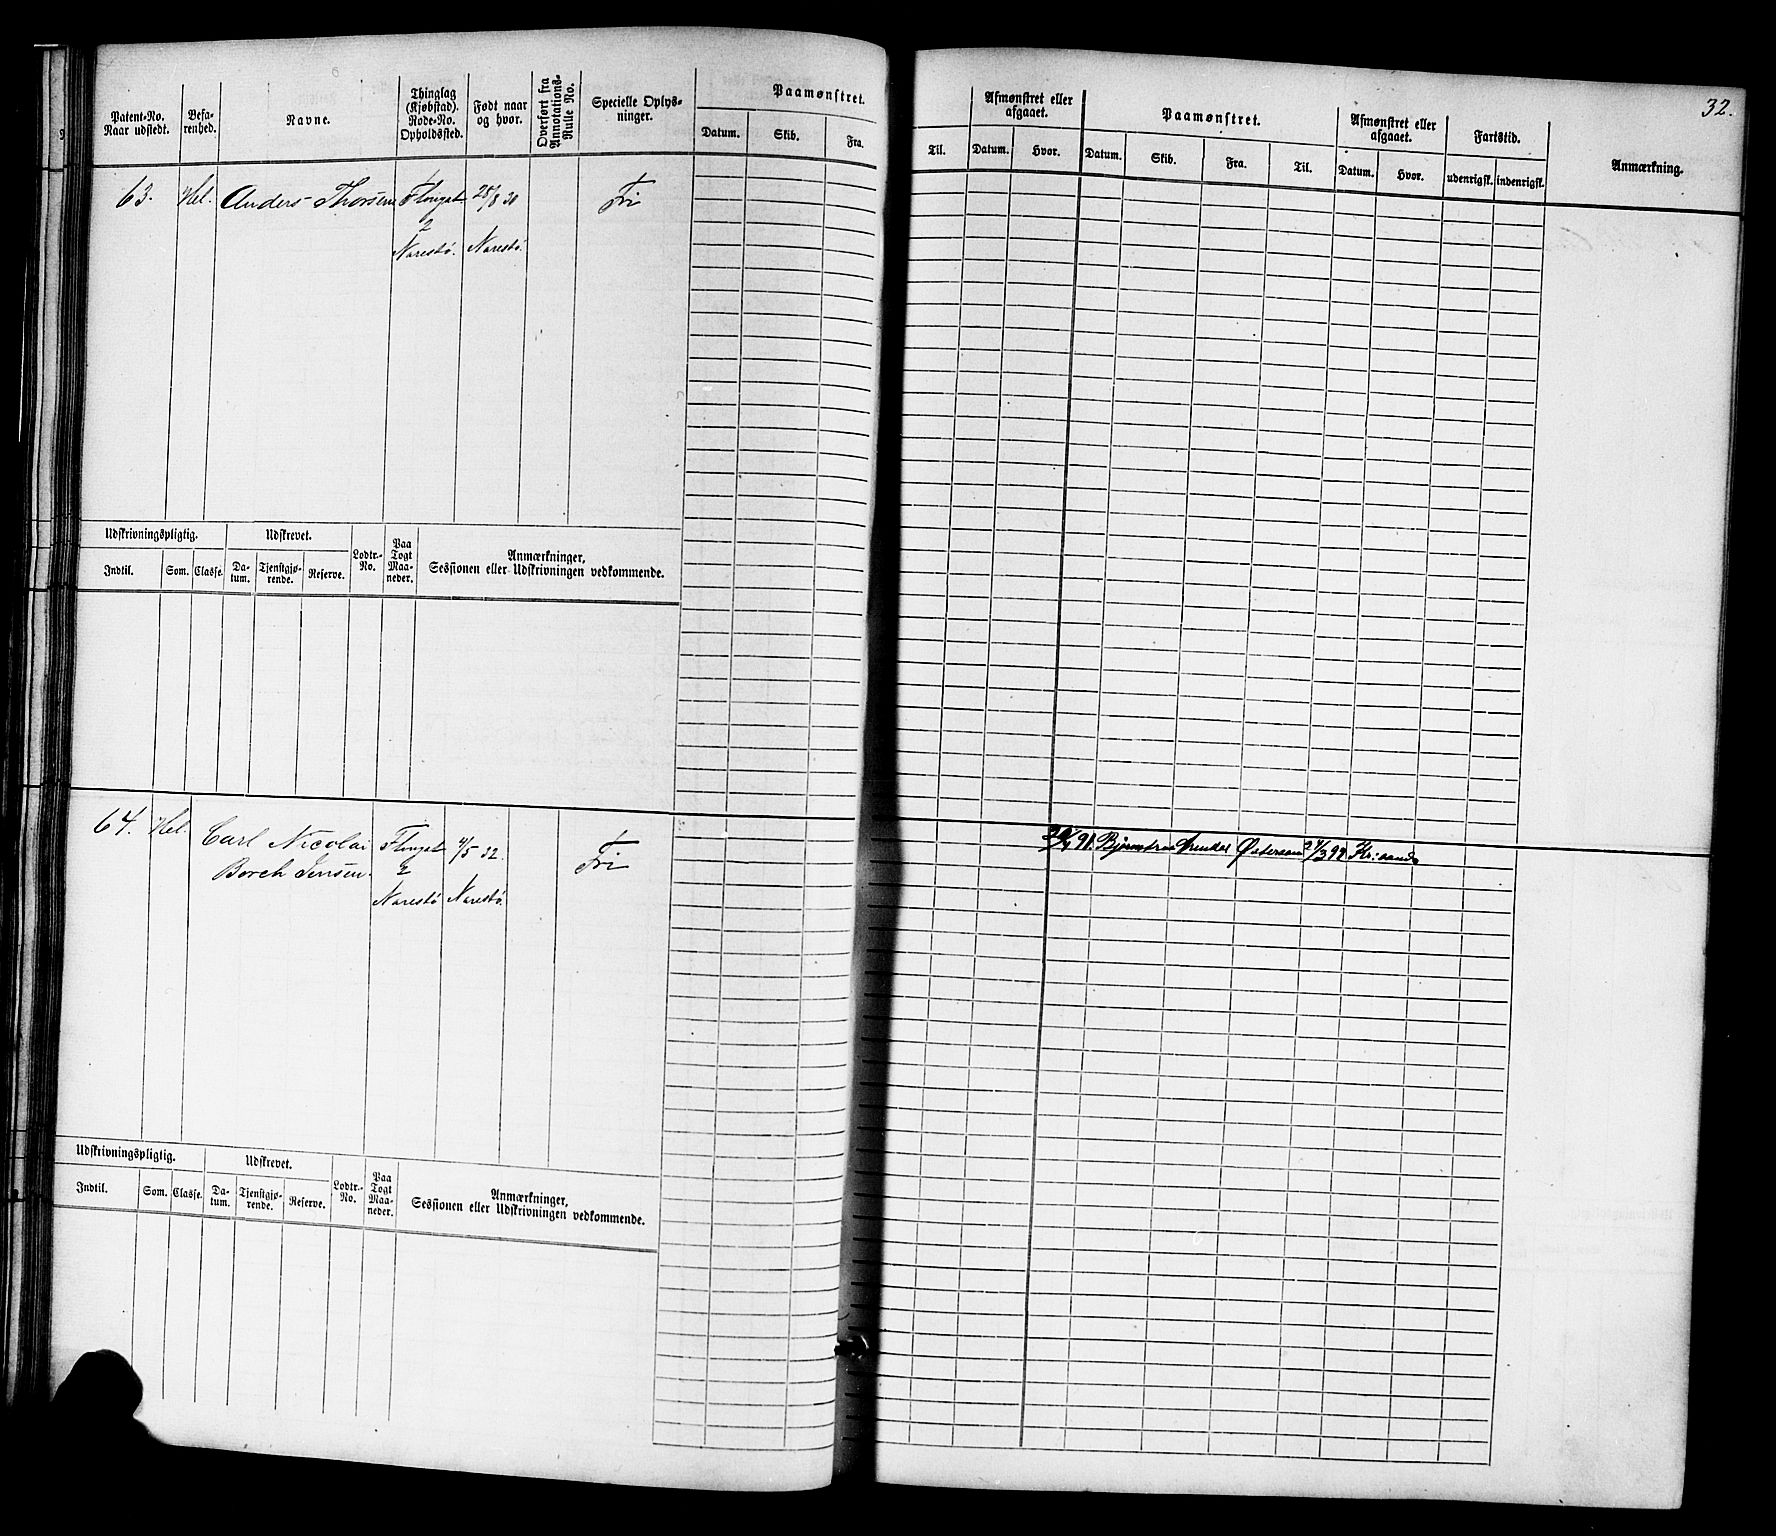 32.
Patent-No.
Naar udstedt.
Befa-
renhed.
Navne.
Thinglag
(Kjøbstad).
Rode-No.
Opholdssted.
Født naar
og hvor.
Overført fra
Annotations-
Rulle No.
Specielle Oplys-
ninger.
Paamønstret.
Datum.
Skib.
Fra.
Til.
Afmønstret eller
afgaaet.
Datum.
Hvor.
Paamønstret.
Datum.
Skib.
Fra.
Til.
Afmønstret eller
afgaaet.
Datum.
Hvor.
Fartstid.
udenrigsk.
indenrigsk.
Anmærkning.
63.
Hel.
Anders Thorsen
2
Narestø.
28/8 30
Narestø.
Fri
Udskrivningspligtig.
Indtil.
Som.
Classe.
Udskrevet.
Da-
tum.
Tjenstgjø-
rende.
Reserve.
Lodtr.-
No.
Paa
Togt
Maa-
neder.
Anmærkninger,
Sessionen eller Udskrivningen vedkommende.
64.
Hel.
Carl Nicolai
Borch Jensen.
2
Narestø
/5 32.
Narestø.
Fri
91.
Kr:sand
Udskrivningspligtig.
Indtil.
Som.
Classe.
Udskrevet.
Da-
tum.
Tjenstgjø-
rende.
Reserve.
Lodtr.-
No.
Paa
Togt
Maa-
neder.
Anmærkninger,
Sessionen eller Udskrivningen vedkommende.